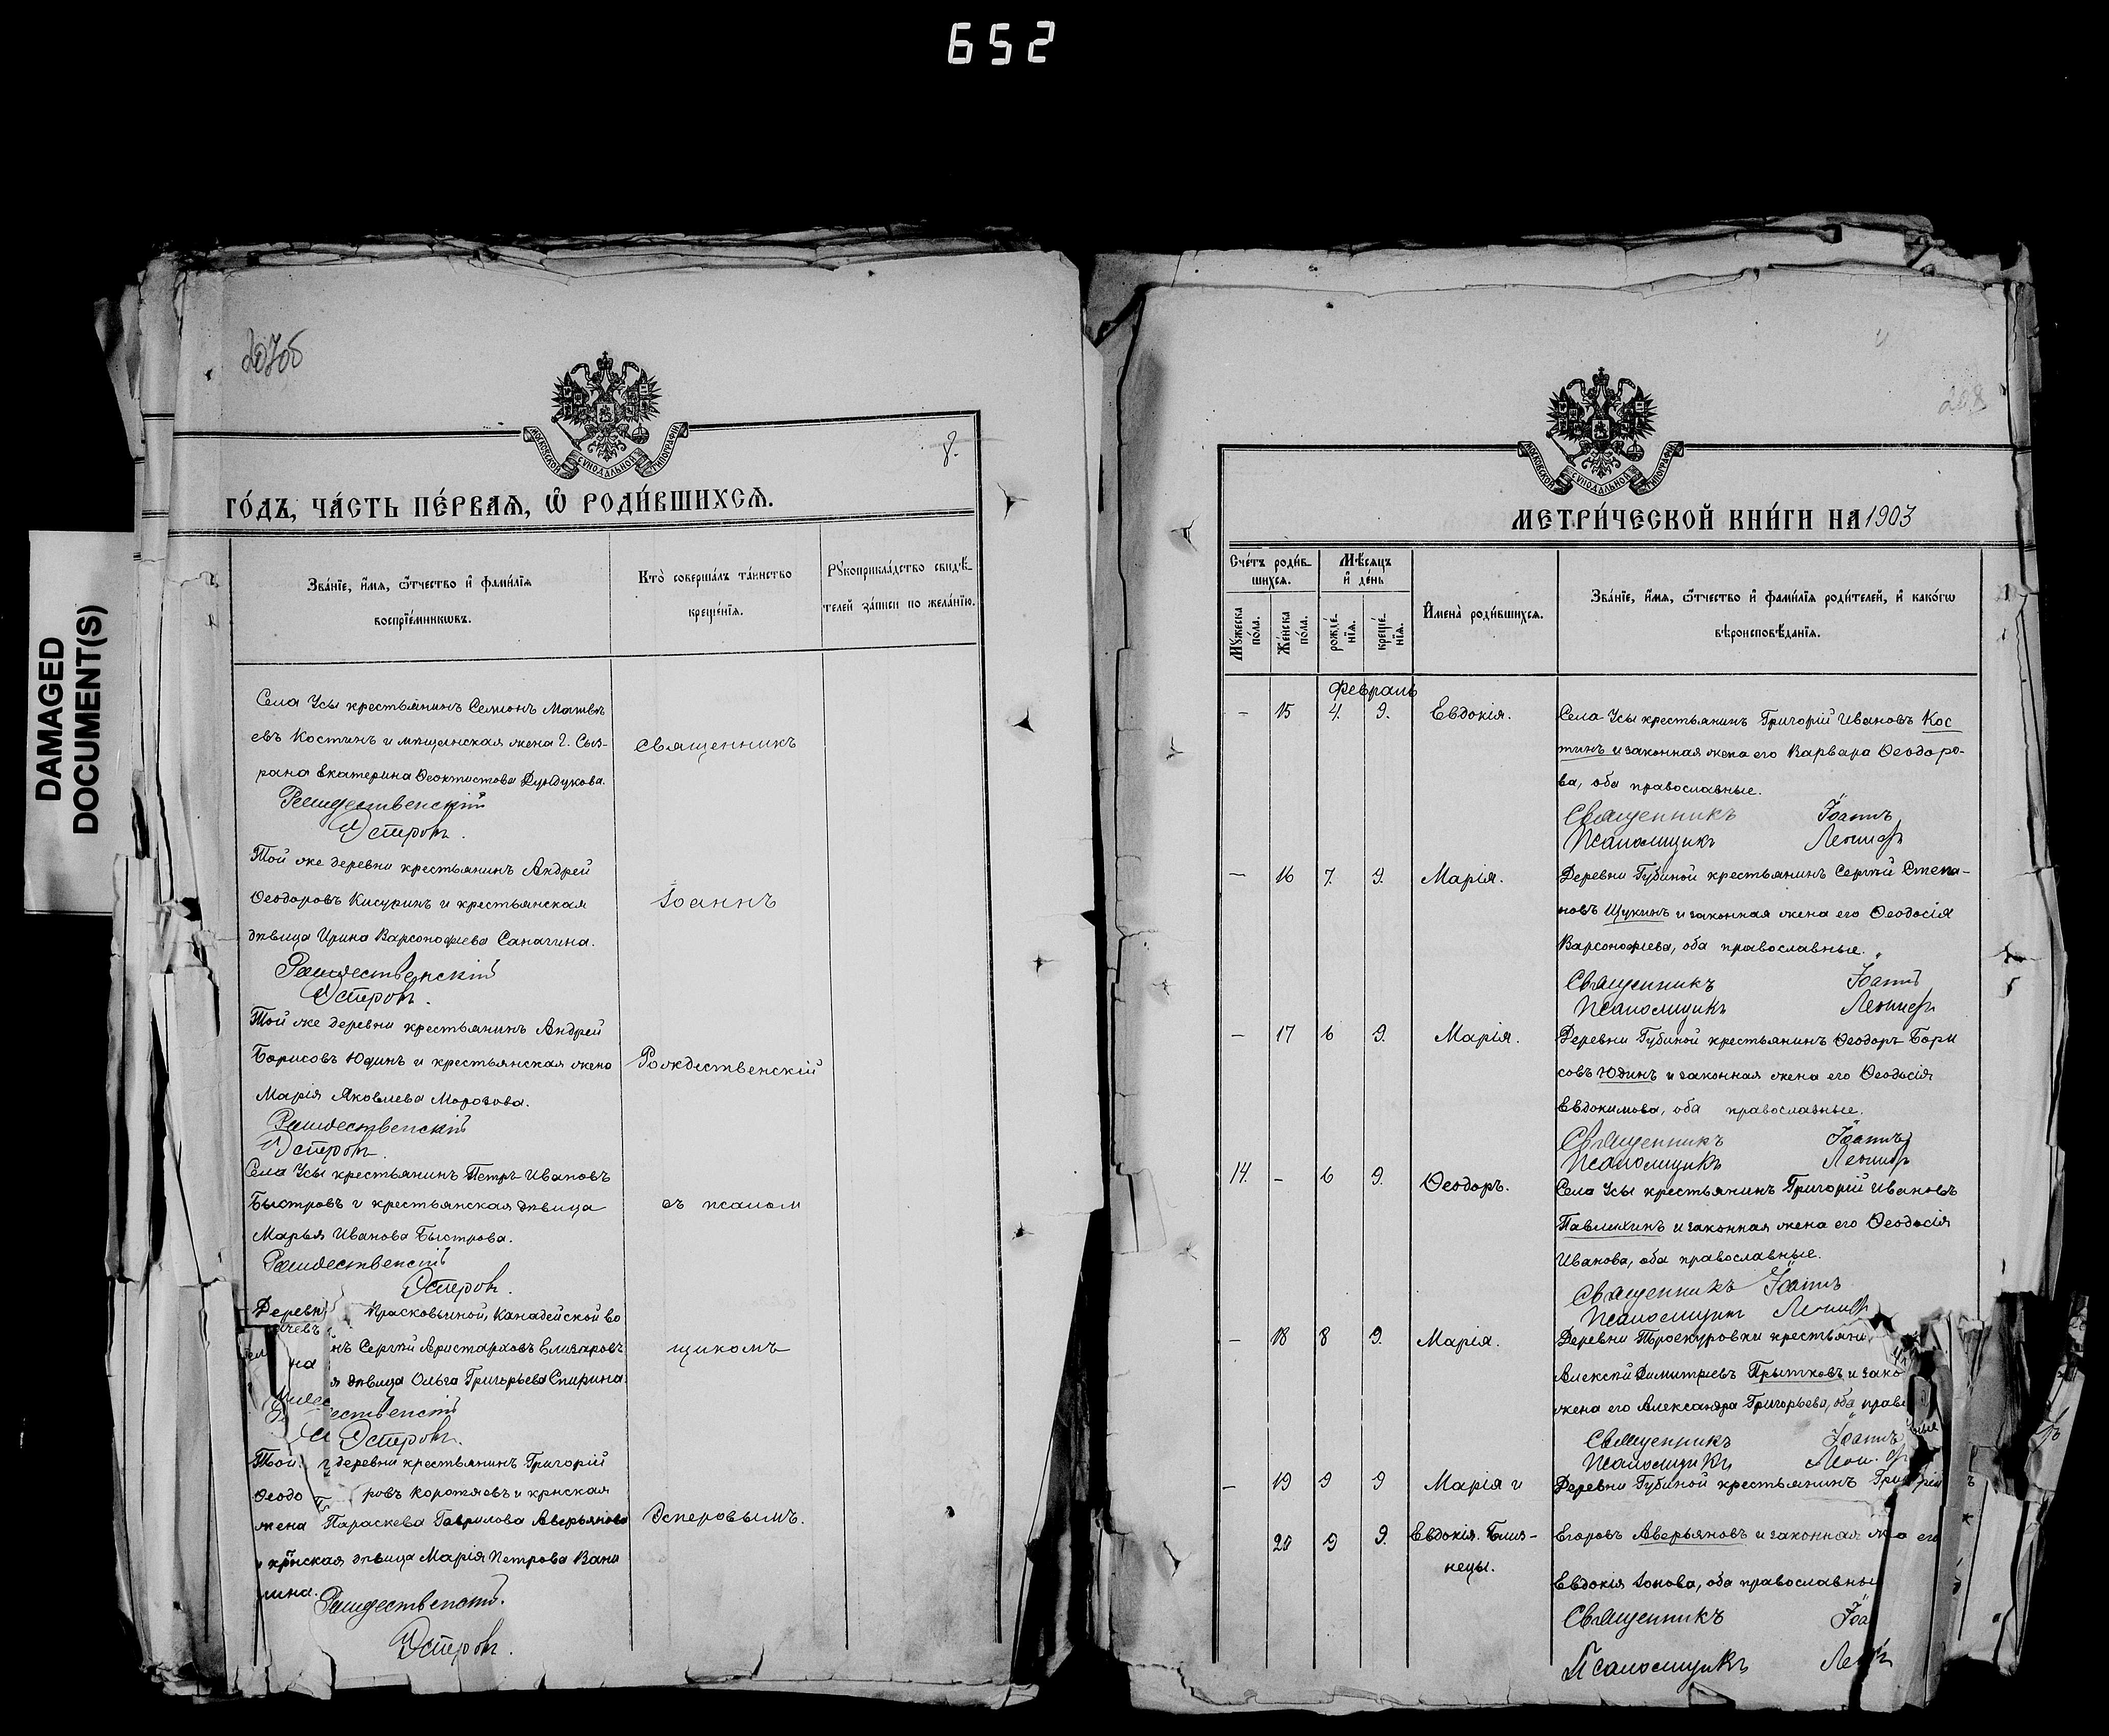 652
DAMAGED
DOCUMENT(S)
207об
МОСКОВСКОЙ СУНОДАЛЬНОЙ ТИПОГРАФІИ
8.
ГО́ДЪ, ЧА́СТЬ ПЕ́РВАѦ, Ѽ РОДИ́ВШИХСѦ.
Зва́нїе, и́мѧ, ѻ҆́тчество и҆ фами́лїѧ
воспрїе́мникѡвъ.
Кто̀ соверша́лъ та́инство
креще́нїѧ.
Рꙋкоприкла́дство свидѣ́-
телей за́писи по жела́нїю.
Села Усы крестьянинъ Семіонъ Матвѣ
евъ Костинъ и мѣщанская жена г. Сыз-
рана Екатерина Ѳеоктистова Дундукова.
Рождественскій
Эсперовъ.
Той же деревни крестьянинъ Андрей
Ѳеодоровъ Кисуринъ и крестьянская
дѣвица Ирина Варсонофіева Саначина.
Рождественскій
Эсперовъ.
Той же деревни крестьянинъ Андрей
Борисовъ Юдинъ и крестьянская жена
Марія Яковлева Морозова.
Рождественскій
Эсперовъ.
Села Усы крестьянинъ Петръ Ивановъ
Быстровъ и крестьянская дѣвица
Марья Иванова Быстрова.
Рождественскій
Эсперовъ.
Деревни Красковьиной, Канадейской во
нъ Сергѣй Аристарховъ Елизаровъ
я дѣвица Ольга Григорьева Спирина
Эсперовъ.
Той деревни крестьянинъ Григорій
Ѳеодо ровъ Коротяевъ и крнская
жена Параскева Гаврилова Аверьянова
и крнская дѣвица Марія Петрова Вани
лина.
Рождественскій.
Эсперовъ.
Священникъ
Іоаннъ
Рождественскій
съ псалом
щикомъ
Эсперовымъ.
208
МОСКОВСКОЙ СУНОДАЛЬНОЙ ТИПОГРАФІИ
МЕТРИ́ЧЕСКОЙ КНИ́ГИ НА 1903
Сче́тъ роди́в-
шихсѧ.
Мѣ́сѧцъ
и҆ де́нь
Мꙋ́жеска
по́ла.
Же́нска
по́ла.
рожде́-
нїѧ.
креще́-
нїѧ.
И҆мена̀ роди́вшихсѧ.
Зва́нїе, и́мѧ, ѻ҆́тчество и҆ фами́лїѧ роди́телей, и҆ како́гѡ
вѣроисповѣ́данїѧ.
Февраль
– 15 4. 9. Евдокія. Села Усы крестьянинъ Григорій Ивановъ Кос
тинъ и законная жена его Варвара Ѳеодоро-
ва, оба православные.
Священникъ Іоаннъ
Псаломщикъ Леонидъ
– 16 7. 9. Марія. Деревни Губиной крестьянинъ Сергѣй Степа-
новъ Щукинъ и законная жена его Ѳеодосія
Варсонофіева, оба православные.
Священникъ Іоаннъ
Псаломщикъ Леонидъ
– 17 6 9. Марія. Деревни Губиной крестьянинъ Ѳеодоръ Бори
совъ Юдинъ и законная жена его Ѳеодосія
Евдокимова, оба православные.
Священникъ Іоаннъ
Псаломщикъ Леонидъ
14. – 6 9. Ѳеодоръ. Села Усы крестьянинъ Григорій Ивановъ
Павлихинъ и законная жена его Ѳеодосія
Иванова, оба православные.
Священникъ Іоаннъ
Псаломщикъ Леонидъ
– 18 8 9. Марія. Деревни Троекуровки крестьяни
Алексѣй Димитріевъ Прытковъ и зако
жена его Александра Григорьева, оба право
Священникъ Іоаннъ
Псаломщикъ
– 19 9 9 Марія и Деревни Губиной крестьянинъ Григорій
20 9 9. Евдокія. Близ- Егоровъ Аверьяновъ и законная же а его
нецы. Евдокія Іонова, оба православны
Священникъ Іоа
Псаломщикъ